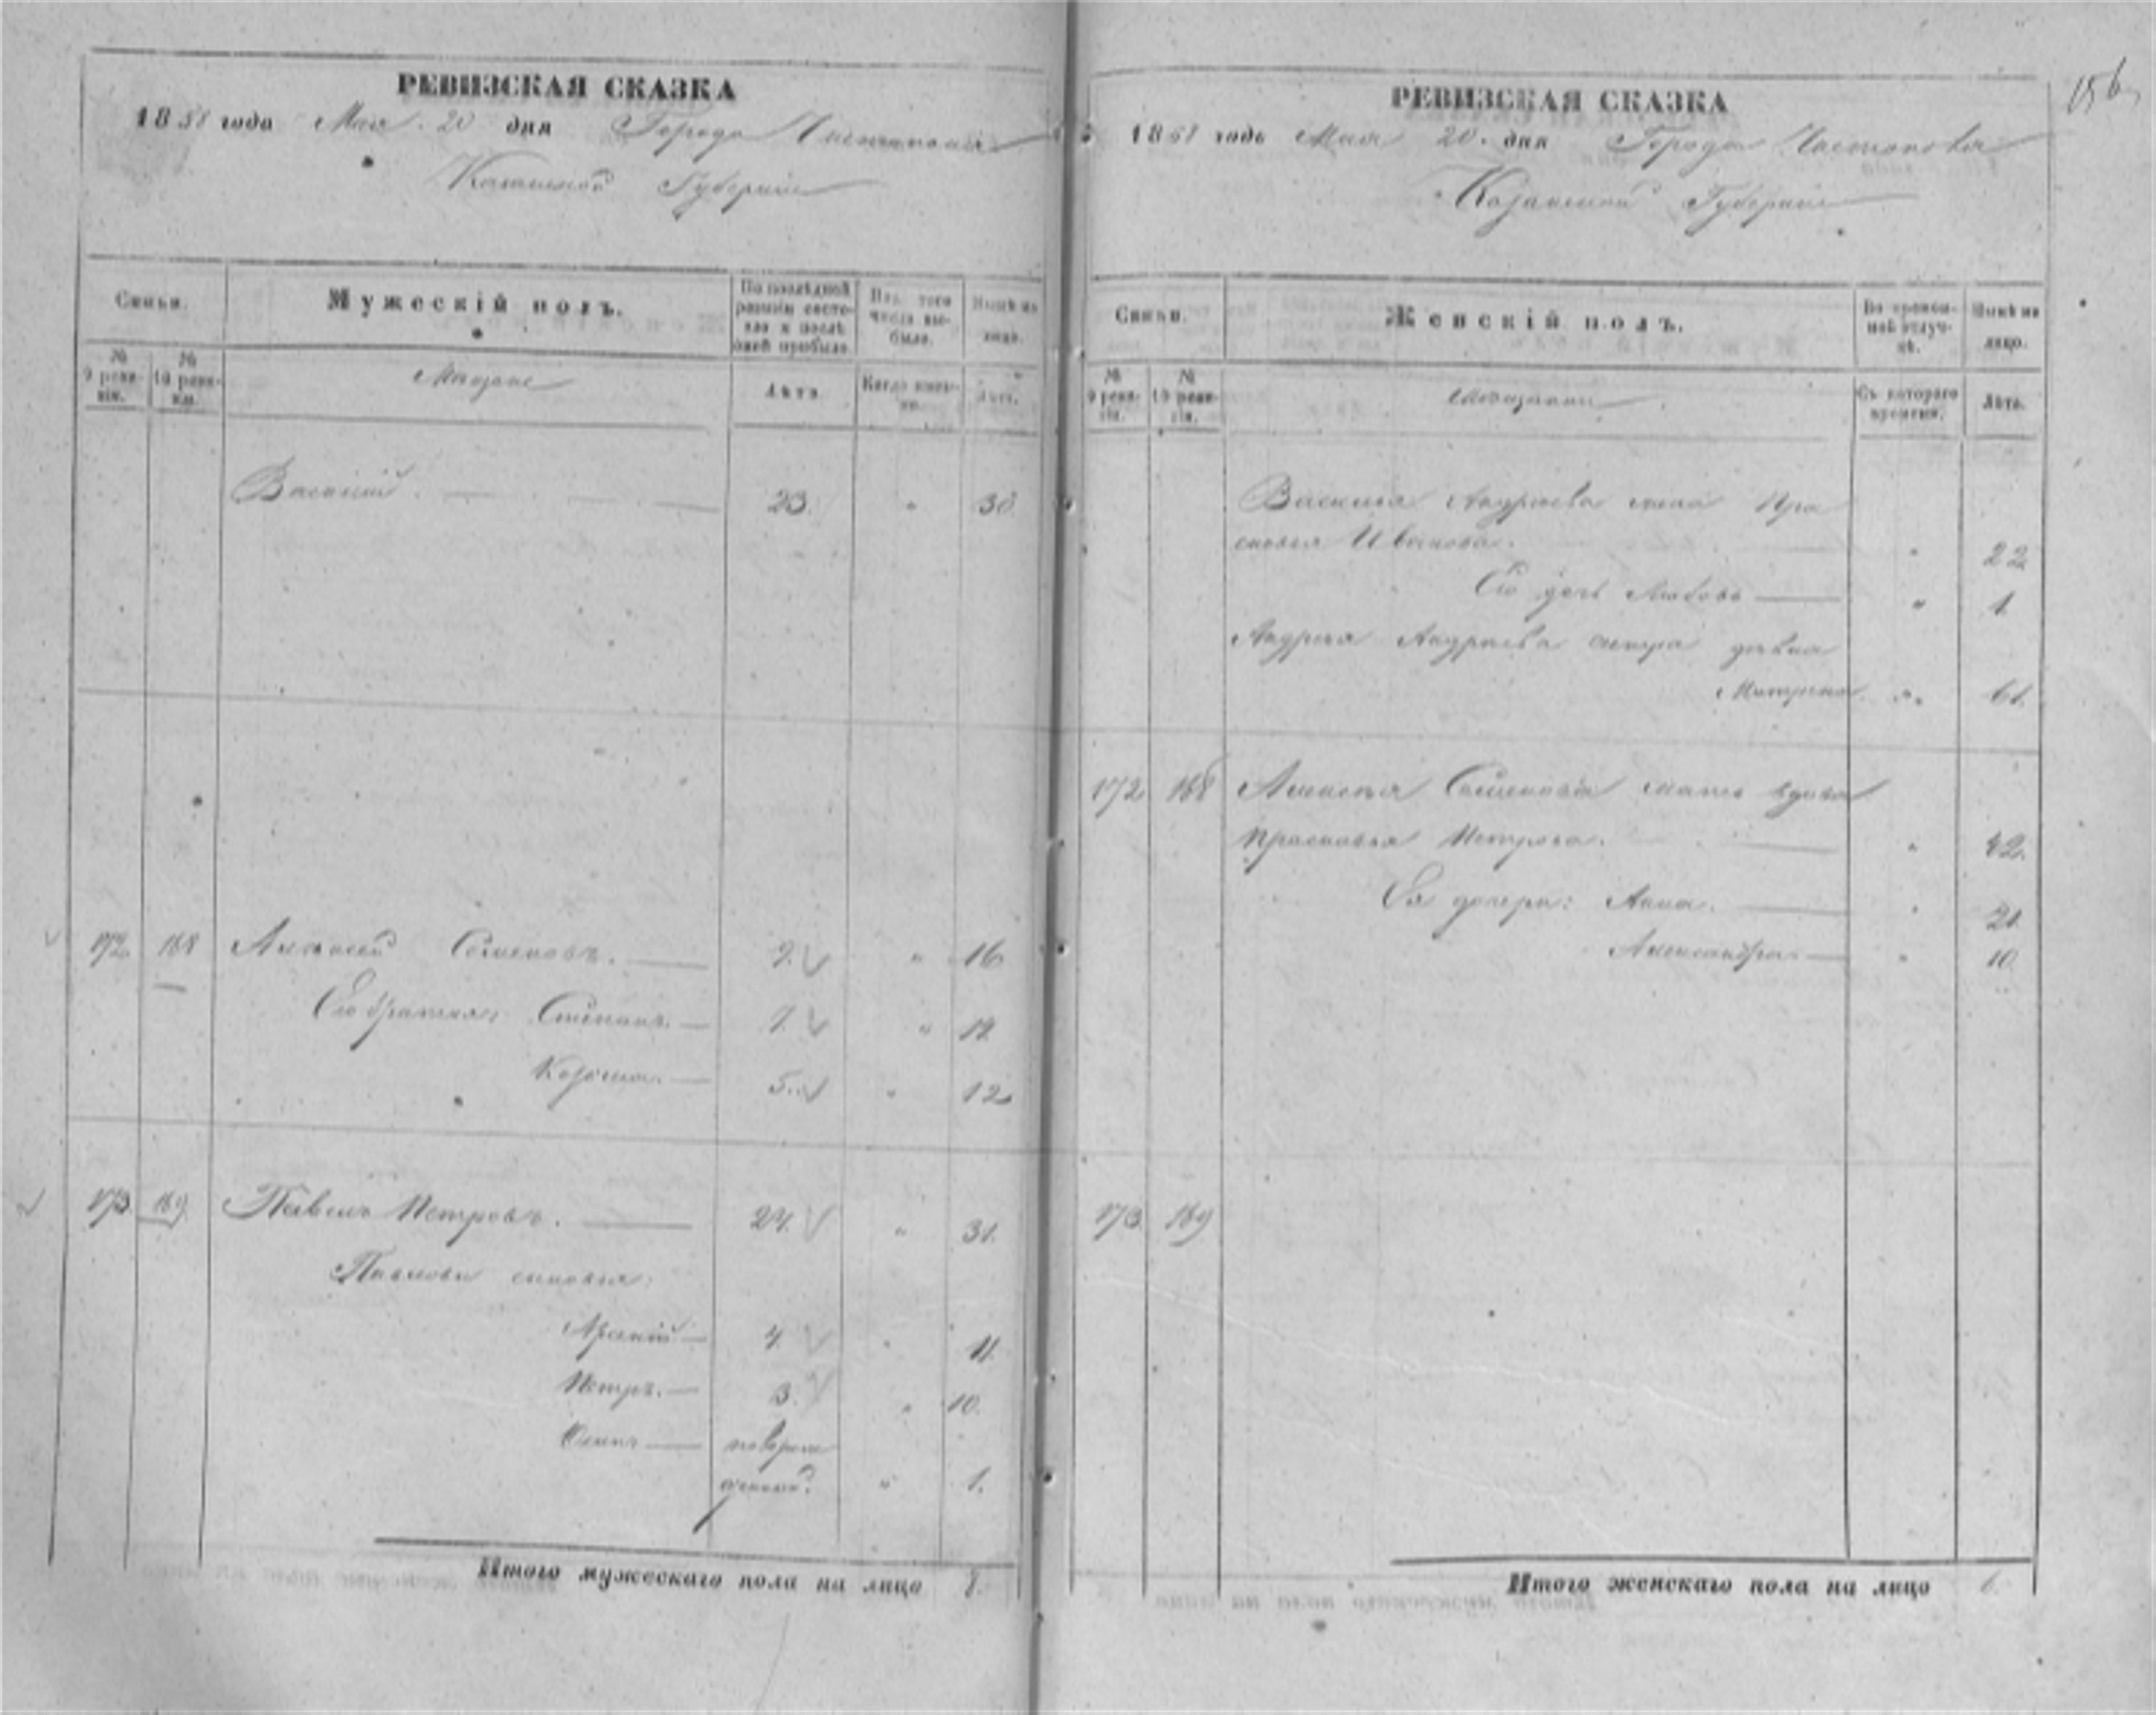 РЕВИЗСКАЯ СКАЗКА
1858 года Мая 20 дня Города Чистополя
Казанской Губерніи
Семьи.
Мужескій полъ.
По послѣдней ревизіи состояло и послѣ оной прибыло.
Изъ того числа выбыло.
Нынѣ на лицо.
№ 9 ревизіи.
№ 10 ревизіи.
Мещане
Лѣта
Когда именно.
Лѣта.
Василий. 23. " 30.
172 168 Алексей Семеновъ. 9. " 16
Его братья: Степанъ. 7. " 14
Козьма. 5. " 12
173 169 Павелъ Петровъ. 24. " 31.
Павловы сыновья:
Арсений 4. " 11.
Петръ. 3. " 10.
Осипъ новорож
денный. " 1.
Итого мужескаго пола на лицо 8.
156
РЕВИЗСКАЯ СКАЗКА
1858 года Мая 20. дня Города Чистополя
Казанской Губерніи
Семьи.
Женскій полъ.
Во временной отлучкѣ.
Нынѣ на лицо.
№ 9 ревизіи.
№ 10 ревизіи.
Мещанки
Съ котораго времени.
Лѣта.
Василья Андреева жена Пра
сковья Иванова. " 22
Его дочь Любовь " 1.
Андрея Андреева сестра девка
Матрена " 61.
172 168 Алексея Семенова мать вдова
Прасковья Петрова. " 42.
Ея дочери: Анна. " 21
Александра " 10.
173 169
Итого женскаго пола на лицо 6.